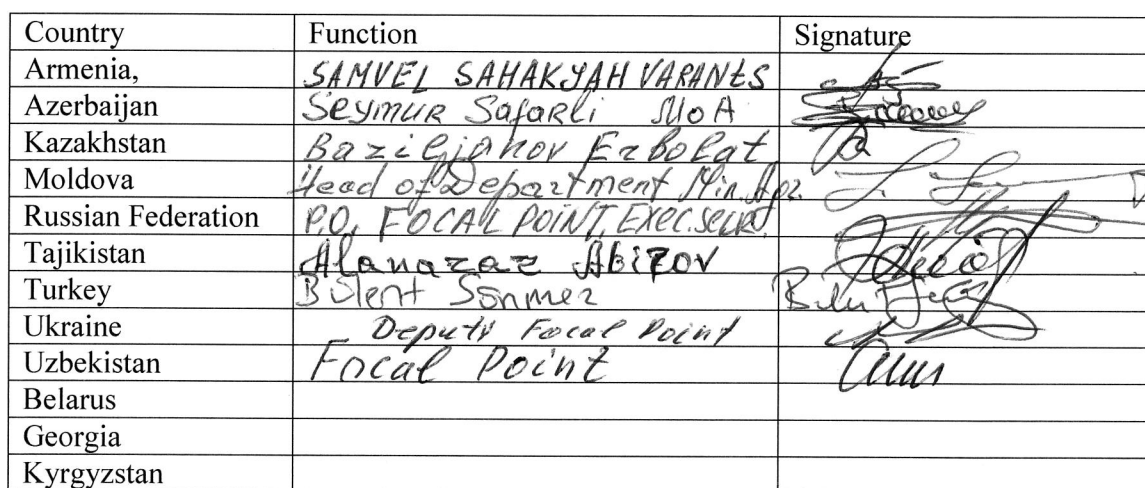 Country Function Signature
Armenia, SAMVEL SAHAKYAH VARANES
Azerbaijan Seymur Safarli MoA
Kazakhstan Baziljanov Erbolat
Moldova Head of Department Min. Agr.
Russian Federation P.O. FOCAL POINT, EXEC.
Tajikistan Alanazar Abizov
Turkey Bülent Sönmez
Ukraine Deputy Focal Point
Uzbekistan Focal Point
Belarus
Georgia
Kyrgyzstan